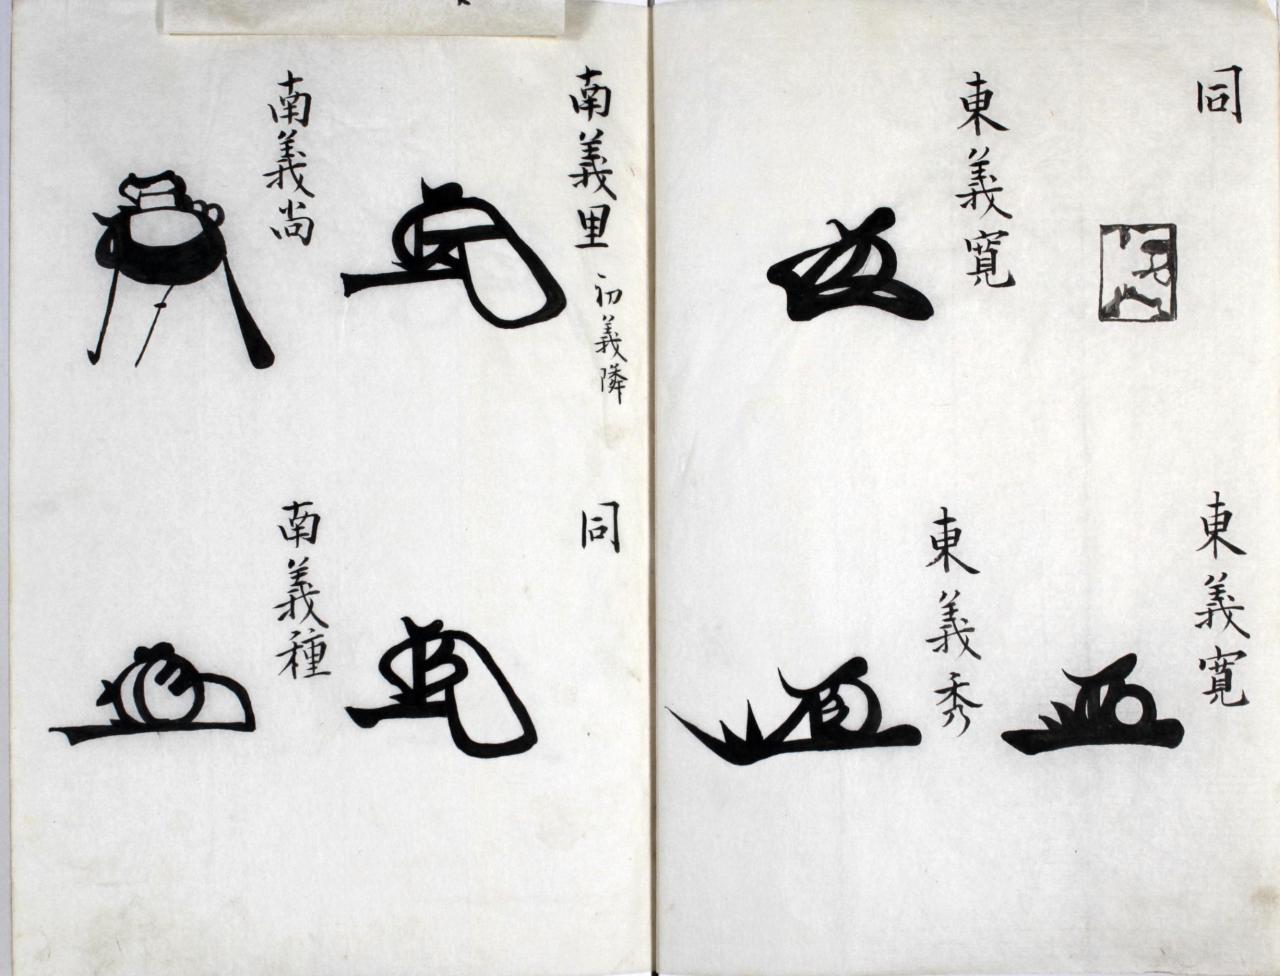 同
東義寛
東義寛
東義秀
南義里 初義隣
同
南義尚
南義種